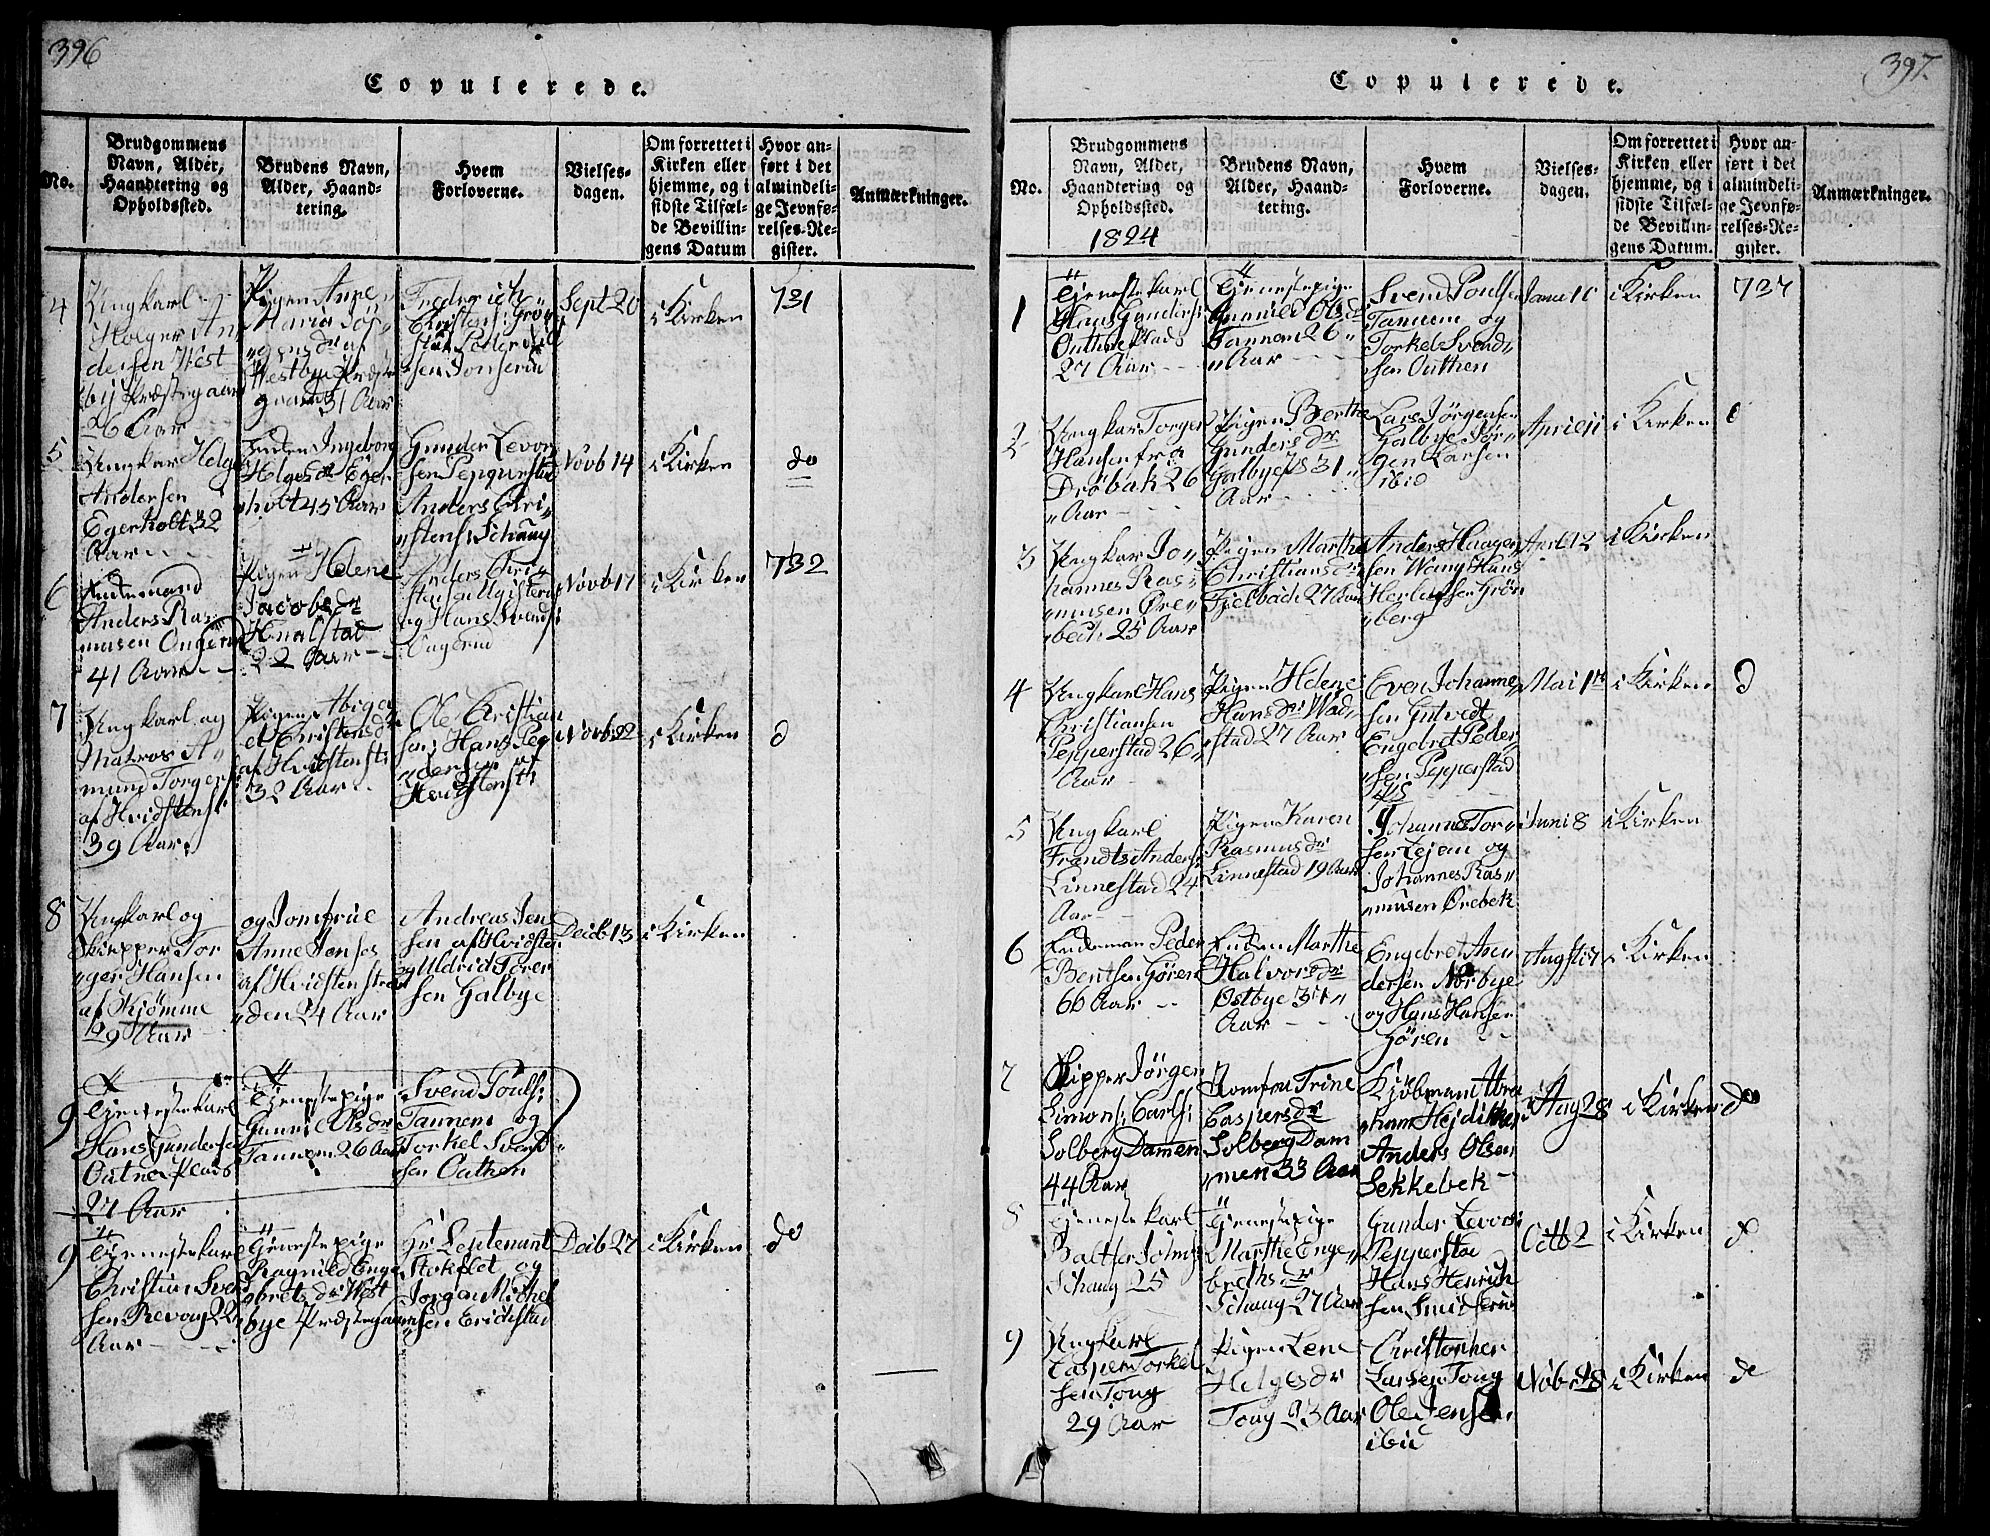 396
Copulerede.
No.
Brudgommens
Navn, Alder,
Haandtering og
Opholdssted.
Brudens Navn,
Alder, Haand-
tering.
Hvem
Forloverne.
Vielses-
dagen.
Om forrettet i
Kirken eller
hjemme, og i
sidste Tilfæl-
de Bevillin-
gens Datum
Hvor an-
ført i det
almindeli-
ge Jevnfø-
relses-Re-
gister.
Anmærkninger.
4
Ungkarl
Holger An
dersen West
by Præstegaard
26 Aar
Pigen Anne
Maria Jör
gensdr af
Westbye Præste
gaard 31 Aar
Frederich
Christens: Grö
stad Peder
sen Jonserud
Sept 20
i Kirken
731
5
Ungkar Helge
Andersen
Egerholt 32
Aar
Enken Ingeborg
Helgesdr Eger
holt 45 Aar
Gunder Levor
sen Pepperstad
Anders Chri
stens: Schaug
Novb 14
i Kirken
do
6
Enkemand
Anders Ras
musen Ongerud
41 Aar
Pigen Helene
Jacobsdr
Knalstad
22 Aar
Anders Chri
stensen
og Hans Svends:
Ongerud
Novb 17
i Kirken
732
7
Ungkarl og
Matros A
mund Torgers:
af Hvidstenst:
39 Aar
Pigen Abiga
el Christensdr
af Hvidstenst:
32 Aar
Ole Christian
sen Hans Pe
dersen af
Hvidstenst:
Novb 22
i Kirken
d
8
Ungkarl og
Skipper Tor
ger Hansen
af Kjömme
29 Aar
og Jomfrue
Anne Jenses
af Hvidstenstran
den 24 Aar
Andreas Jen
sen af Hvidsten
og Uldrid Torer
sen Galbye
Decb 13
i Kirken
9
Tjenestekarl
Hans Gundersen
Outne Plads
27 Aar
Tjenestepige
Gunnil Olsdr
Tannem 26 Aar
Svend Pouls:
Tannem og
Torkel Svend
sen Outhen
9
Tjenestekarl
Christian Svend
sen Revoug 22
Aar
Tjenestepige
Ragnild Enge
bretsdr West
bye Præstegaard
Hr Leutenant
Stokflet og
Jörgen Michel
sen Eridstad
Decb 27
i Kirken
do
397.
Copulerede.
No.
Brudgommens
Navn, Alder,
Haandtering og
Opholdssted.
1824
Brudens Navn,
Alder, Haand-
tering.
Hvem
Forloverne.
Vielses-
dagen.
Om forrettet i
Kirken eller
hjemme, og i
sidste Tilfæl-
de Bevillin-
gens Datum.
Hvor an-
ført i det
almindeli-
ge Jevnfø-
relses-Re-
gister.
Anmærkninger.
1
Tjenestekarl
Hans Gunders:
Outhne Plads
27 Aar
Tjenestepige
Gunnild Olsdr
Tannem 26
Aar
Svend Poulsen
Tannem og
Torkel Svend
sen Outhen
i Kirken
737
2
Ungkar Torger
Hansen fra
Dröbak 26
Aar
Pigen Berthe
Gundersdr
Galbye 31
Aar
Lars Jörgensen
Galbye Jör
gen Larsen
ibid
April 11
i Kirken
d
3
Ungkar Jo
hannes Ras
musen Öre
bek 25 Aar
Pigen Marthe
Christiansdr
Fjelbach 27 Aar
Anders Haagen
sen Woug Hans
Herlufsen Grön
berg
April 12
i Kirken
4
Ungkarl Hans
Christiansen
Pepperstad 26
Aar
Pigen Helene
Hansdr Wad
stad 27 Aar
Even Johanne
sen Gutvedt
Engebret Peder
sen Pepperstad
Mai 1
i Kirken
d
5
Ungkarl
Frandts Anders:
Linnestad 24
Aar
Pigen Karen
Rasmusdr
Linnestad 19 Aar
Johannes Tor
sen Lejen og
Johannes Ras
musen Örebek
Juni 8
i Kirken
6
Enkeman Peder
Bentsen Gören
66 Aar
Enken Marthe
Halvorsdr
Ostbye
Aar
Engebret An
dersen Norbye
og Hans Hansen
Gören
i Kirken
7
Skipper Jörgen
Simons: Carls:
Solberg Dammen
44 Aar
Jomfru Trine
Caspersdr
Solberg Dam
men 33 Aar
Kjöbmand Abra
ham
Anders Olsen
Sekkebek
Aug 28
i Kirken
do
8
Tjenestekarl
Baltser
Schaug 25
Tjenestepige
Marthe Enge
brethsdr
Schaug 27 Aar
Gunder Levors:
Pepperstad
Hans Henrich
sen Smidserud
Octb 2
i Kirken
d
9
Ungkarl
Casper Torkel
sen Toug
29 Aar
Pigen Lene
Helgesdr
Toug 23 Aar
Christopher
Larsen Toug
Ole Jensen
ibid
Novb 28
i Kirken
do